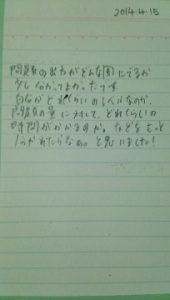 2014.4.15
問題のおおがどんな風にでるか
少しわかってよかったです
自分がどれくらいのレベルなのか、
問題の量に対して、どれくらいの
時間がかかるのか。などをもっと
つかれたらなぁ。と思いました！